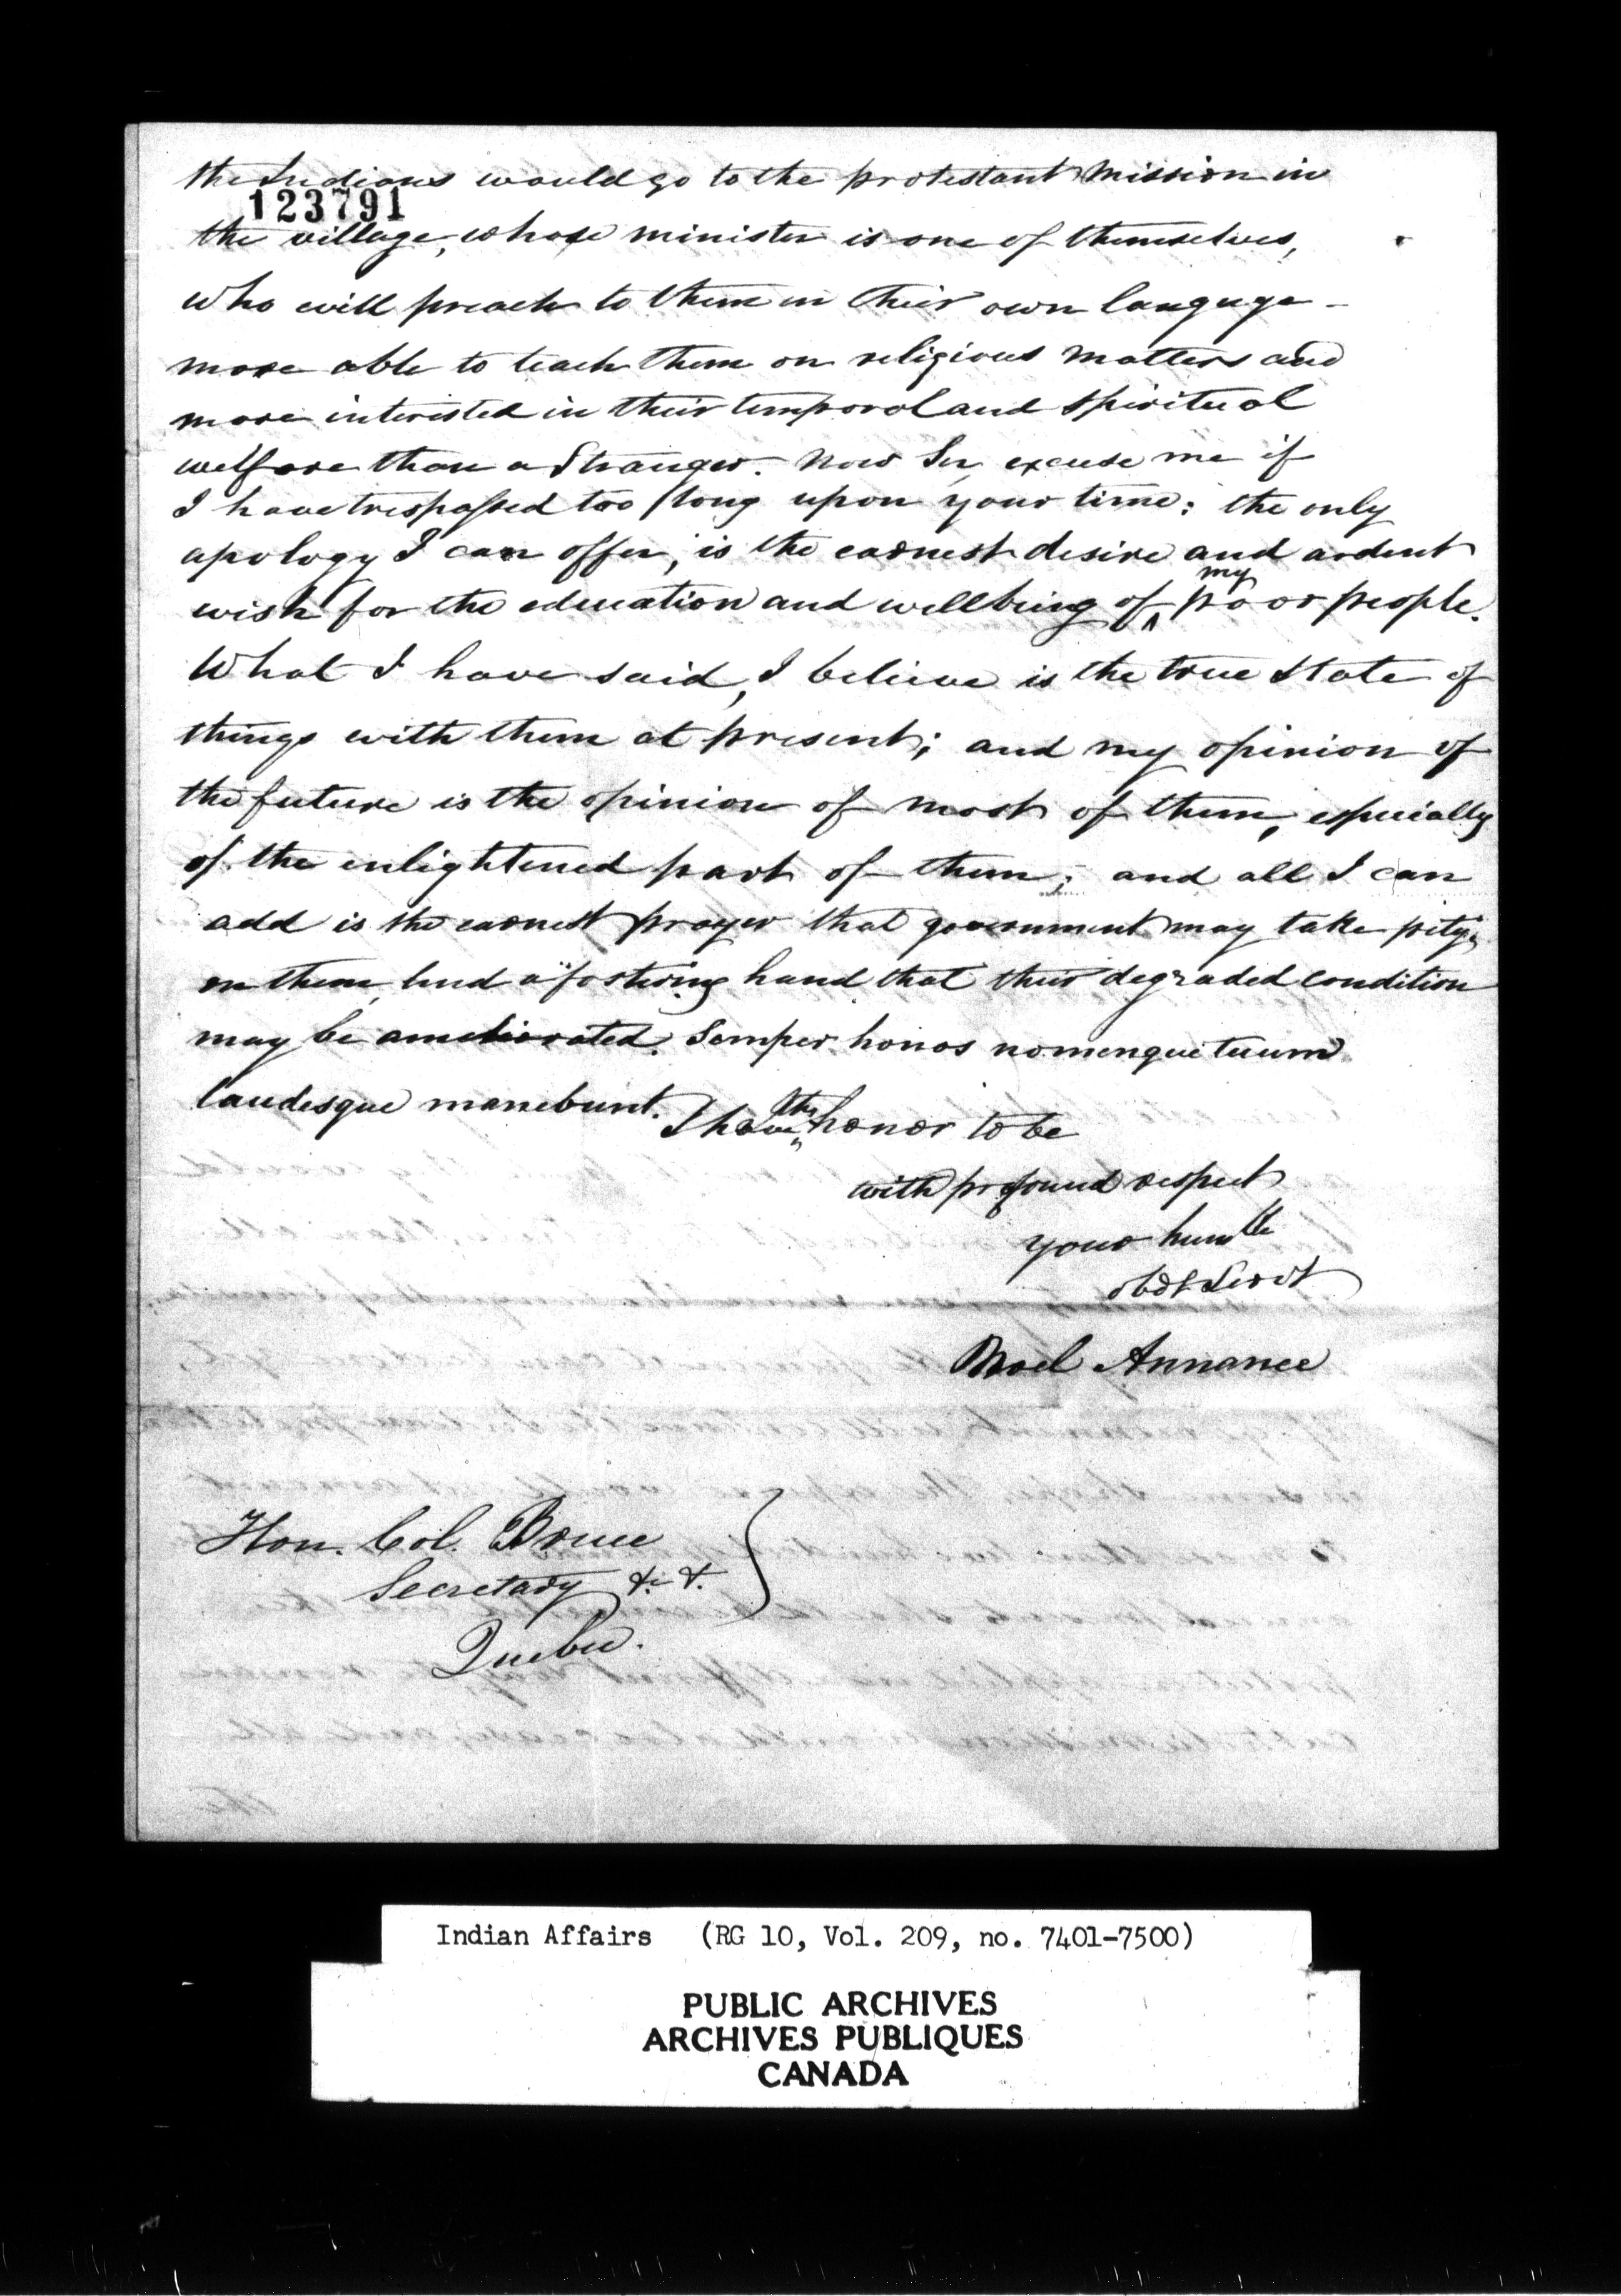 the Indians would go to the protestant mission in
123791
the village, whose minister is one of themselves,
who will preach to them in their own language -
more able to teach them on religious matters and
more interested in their temporal and spiritual
welfare than a Stranger. Now Sir, excuse me if
I have trespassed too long upon your time: the only
apology I can offer, is the earnest desire and ardent
my
wish for the education and wellbeing of ^ poor people.
What I have said, I believe is the true state of
things with them at present; and my opinion of
the future is the opinion of most of them, especially
of the enlightened part of them; and all I can
add is the earnest prayer that government may take pity
on them, lend a fostering hand that their degraded condition
may be ameliorated. Semper honos nomenque tuum
laudesque manebunt.
I have the honor to be
with profound respect
your humble
obdt Servt
Noel Annance
Hon. Col. Bruce
Secretary &c &.
Quebec.
Indian Affairs (RG 10, Vol. 209, no. 7401-7500)
PUBLIC ARCHIVES
ARCHIVES PUBLIQUES
CANADA